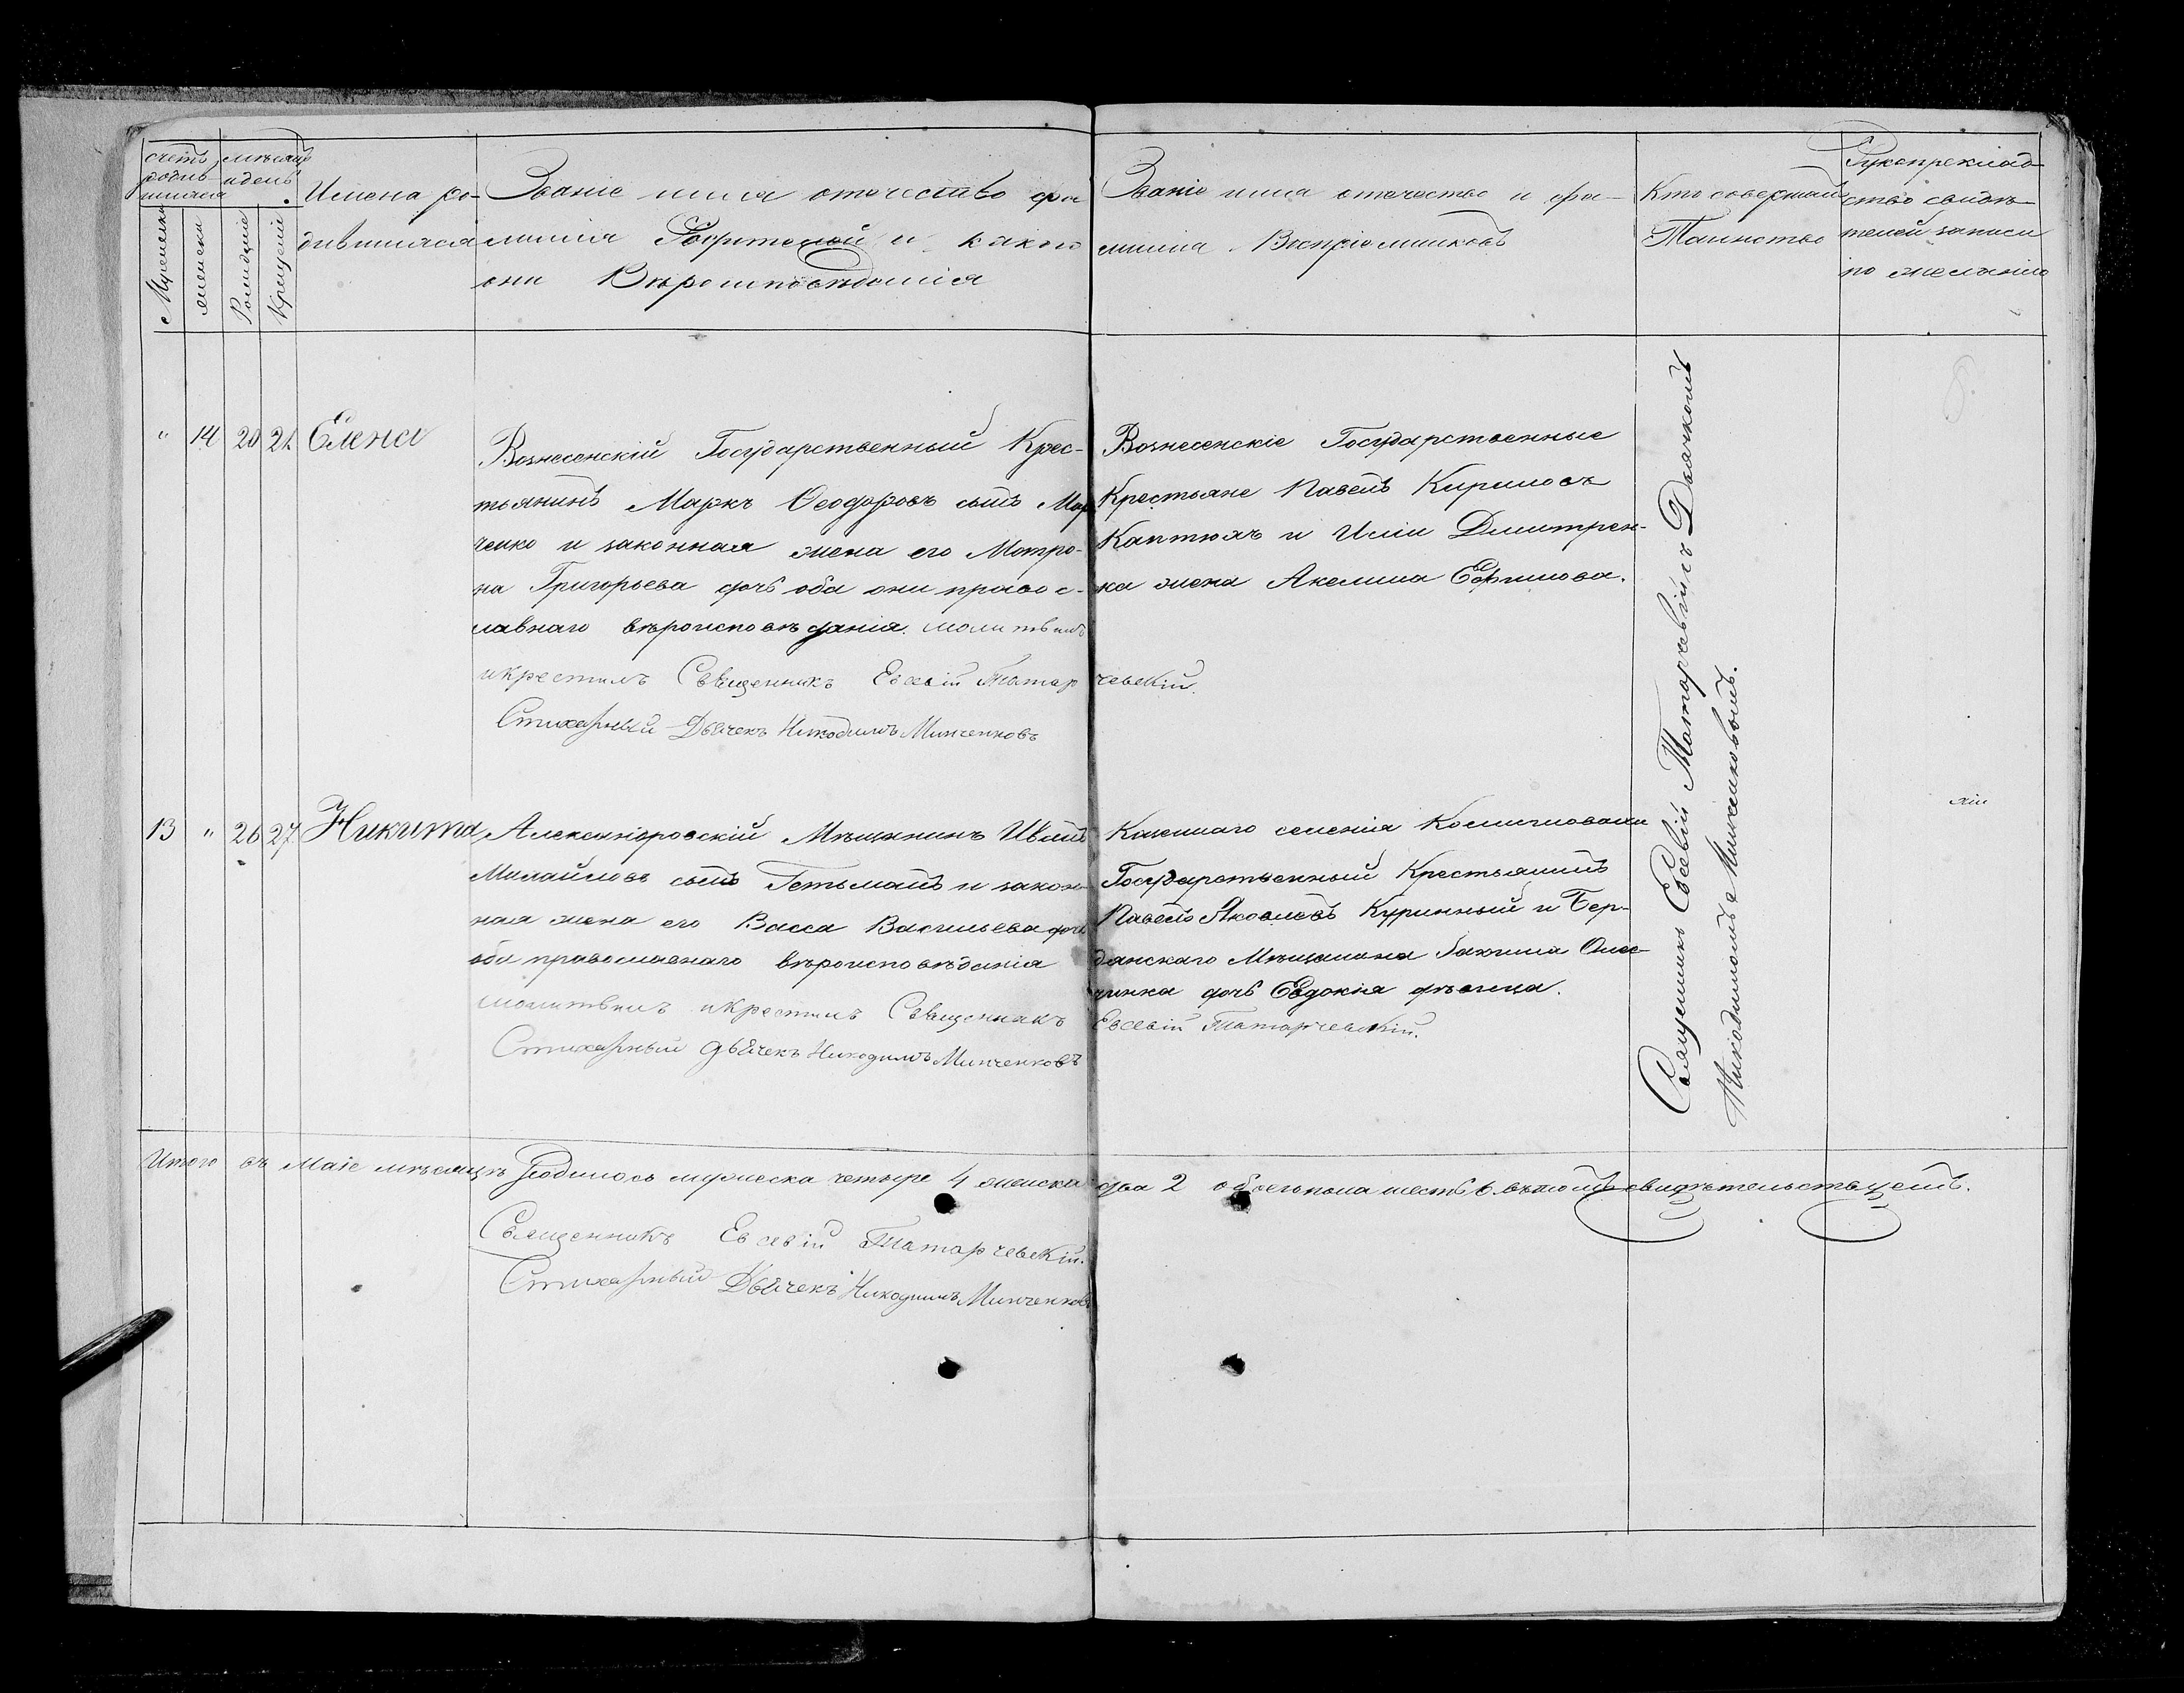 счетъ родив-шихся
мѣсяцъ и день
Мужеска
женска
Рожденіе
Крещеніе
Имена ро-
дившихся
Званіе имя отечество фа
милія Родителей и какого
они Вѣроисповѣданія
Званіе имя отечество и фа-
милія Воспріемниковъ
Кто совершалъ
Таинство
Рукоприклад-
ство свидѣ-
телей записи
по желанію
" 14 20 21 Елена
Вознесенскій Государственный Крес-
тьянинъ Маркъ Ѳеодоровъ сынъ Мар
ченко и законная жена его Мотро-
на Григорьева дочь оба они правос-
лавнаго вѣроисповѣданія. молитвилъ
и крестилъ Священникъ Евсевій Татарчевскій.
Стихарный Дьячекъ Никодимъ Минченковъ
Вознесенскіе Государственные
Крестьяне Павелъ Кириловъ
Каптюхъ и Иліи Дмитрен-
ка жена Акелина Ефимова.
13 " 26 27 Никита
Александровскій Мѣщанинъ Иванъ
Михайловъ сынъ Гетьманъ и закон-
ная жена его Васса Васильева дочь
оба православнаго вѣроисповѣданія
молитвилъ и крестилъ Священникъ Евсевій Татарчевскій.
Стихарный дьячекъ Никодимъ Минченковъ
Казеннаго селенія
Государственный Крестьянинъ
Павелъ Яковлевъ Куринный и Бер-
дянскаго Мѣщанина
дочь Евдокія дѣвица.
Священникъ Евсевій Татарчевскій съ Дьячкомъ
Никодимомъ Минченковымъ.
Итого въ Маіе мѣсяцѣ Родилось мужеска четыре 4 женска два 2 обоего пола шесть 6 въ томъ свидѣтельствуемъ.
Священникъ Евсевій Татарчевскій.
Стихарный Дьячекъ Никодимъ Минченковъ